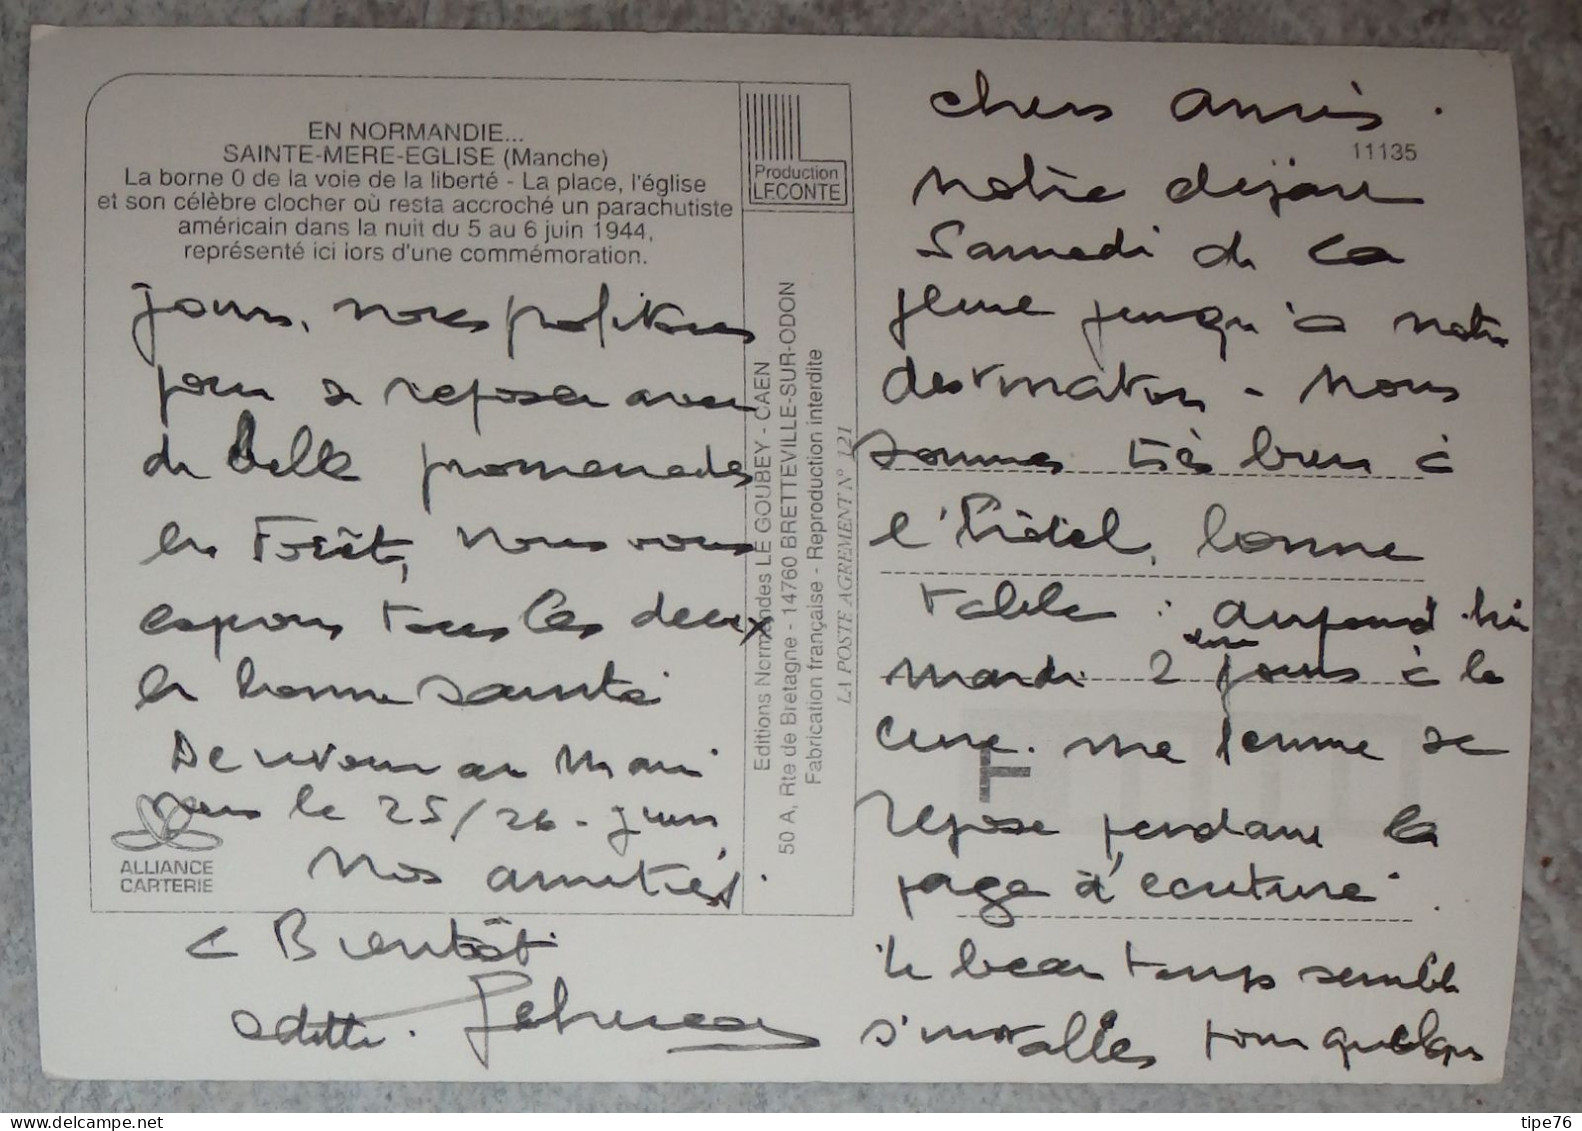 EN NORMANDIE...
SAINTE-MERE-EGLISE (Manche)
La borne 0 de la voie de la liberté - La place, l'église
et son célèbre clocher où resta accroché un parachutiste
américain dans la nuit du 5 au 6 juin 1944,
représenté ici lors d'une commémoration.
Production
LECONTE
11135
Editions Normandes LE GOUBEY - CAEN
50 A, Rte de Bretagne - 14760 BRETTEVILLE-SUR-ODON
Fabrication française - Reproduction interdite
LA POSTE AGREMENT N° 121
chers amis.
notre
Samedi de la
jusqu'à notre
destination - Nous
sommes très bien à
l'hôtel, bonne
table : aujourd'hui
mardi 2 jours à la
cure. ma femme se
repose pendant la
page d'écriture.
le beau temps semble
s'installer pour quelques
jours, nous profitons
pour se reposer avec
de belle promenades
en Forêt, nous vous
espérons tous les deux
en bonne santé
De retour au Mans
vers le 25/26 - juin
Nos amitiés.
à Bientôt
odette.
ALLIANCE
CARTERIE
T
tipe76